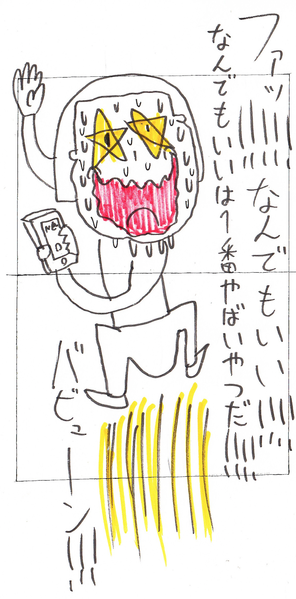 ファッ!!!!! なんでもいい!!!!!
なんでもいいは1番やばいやつだ!!!!!
バビューーン!!!